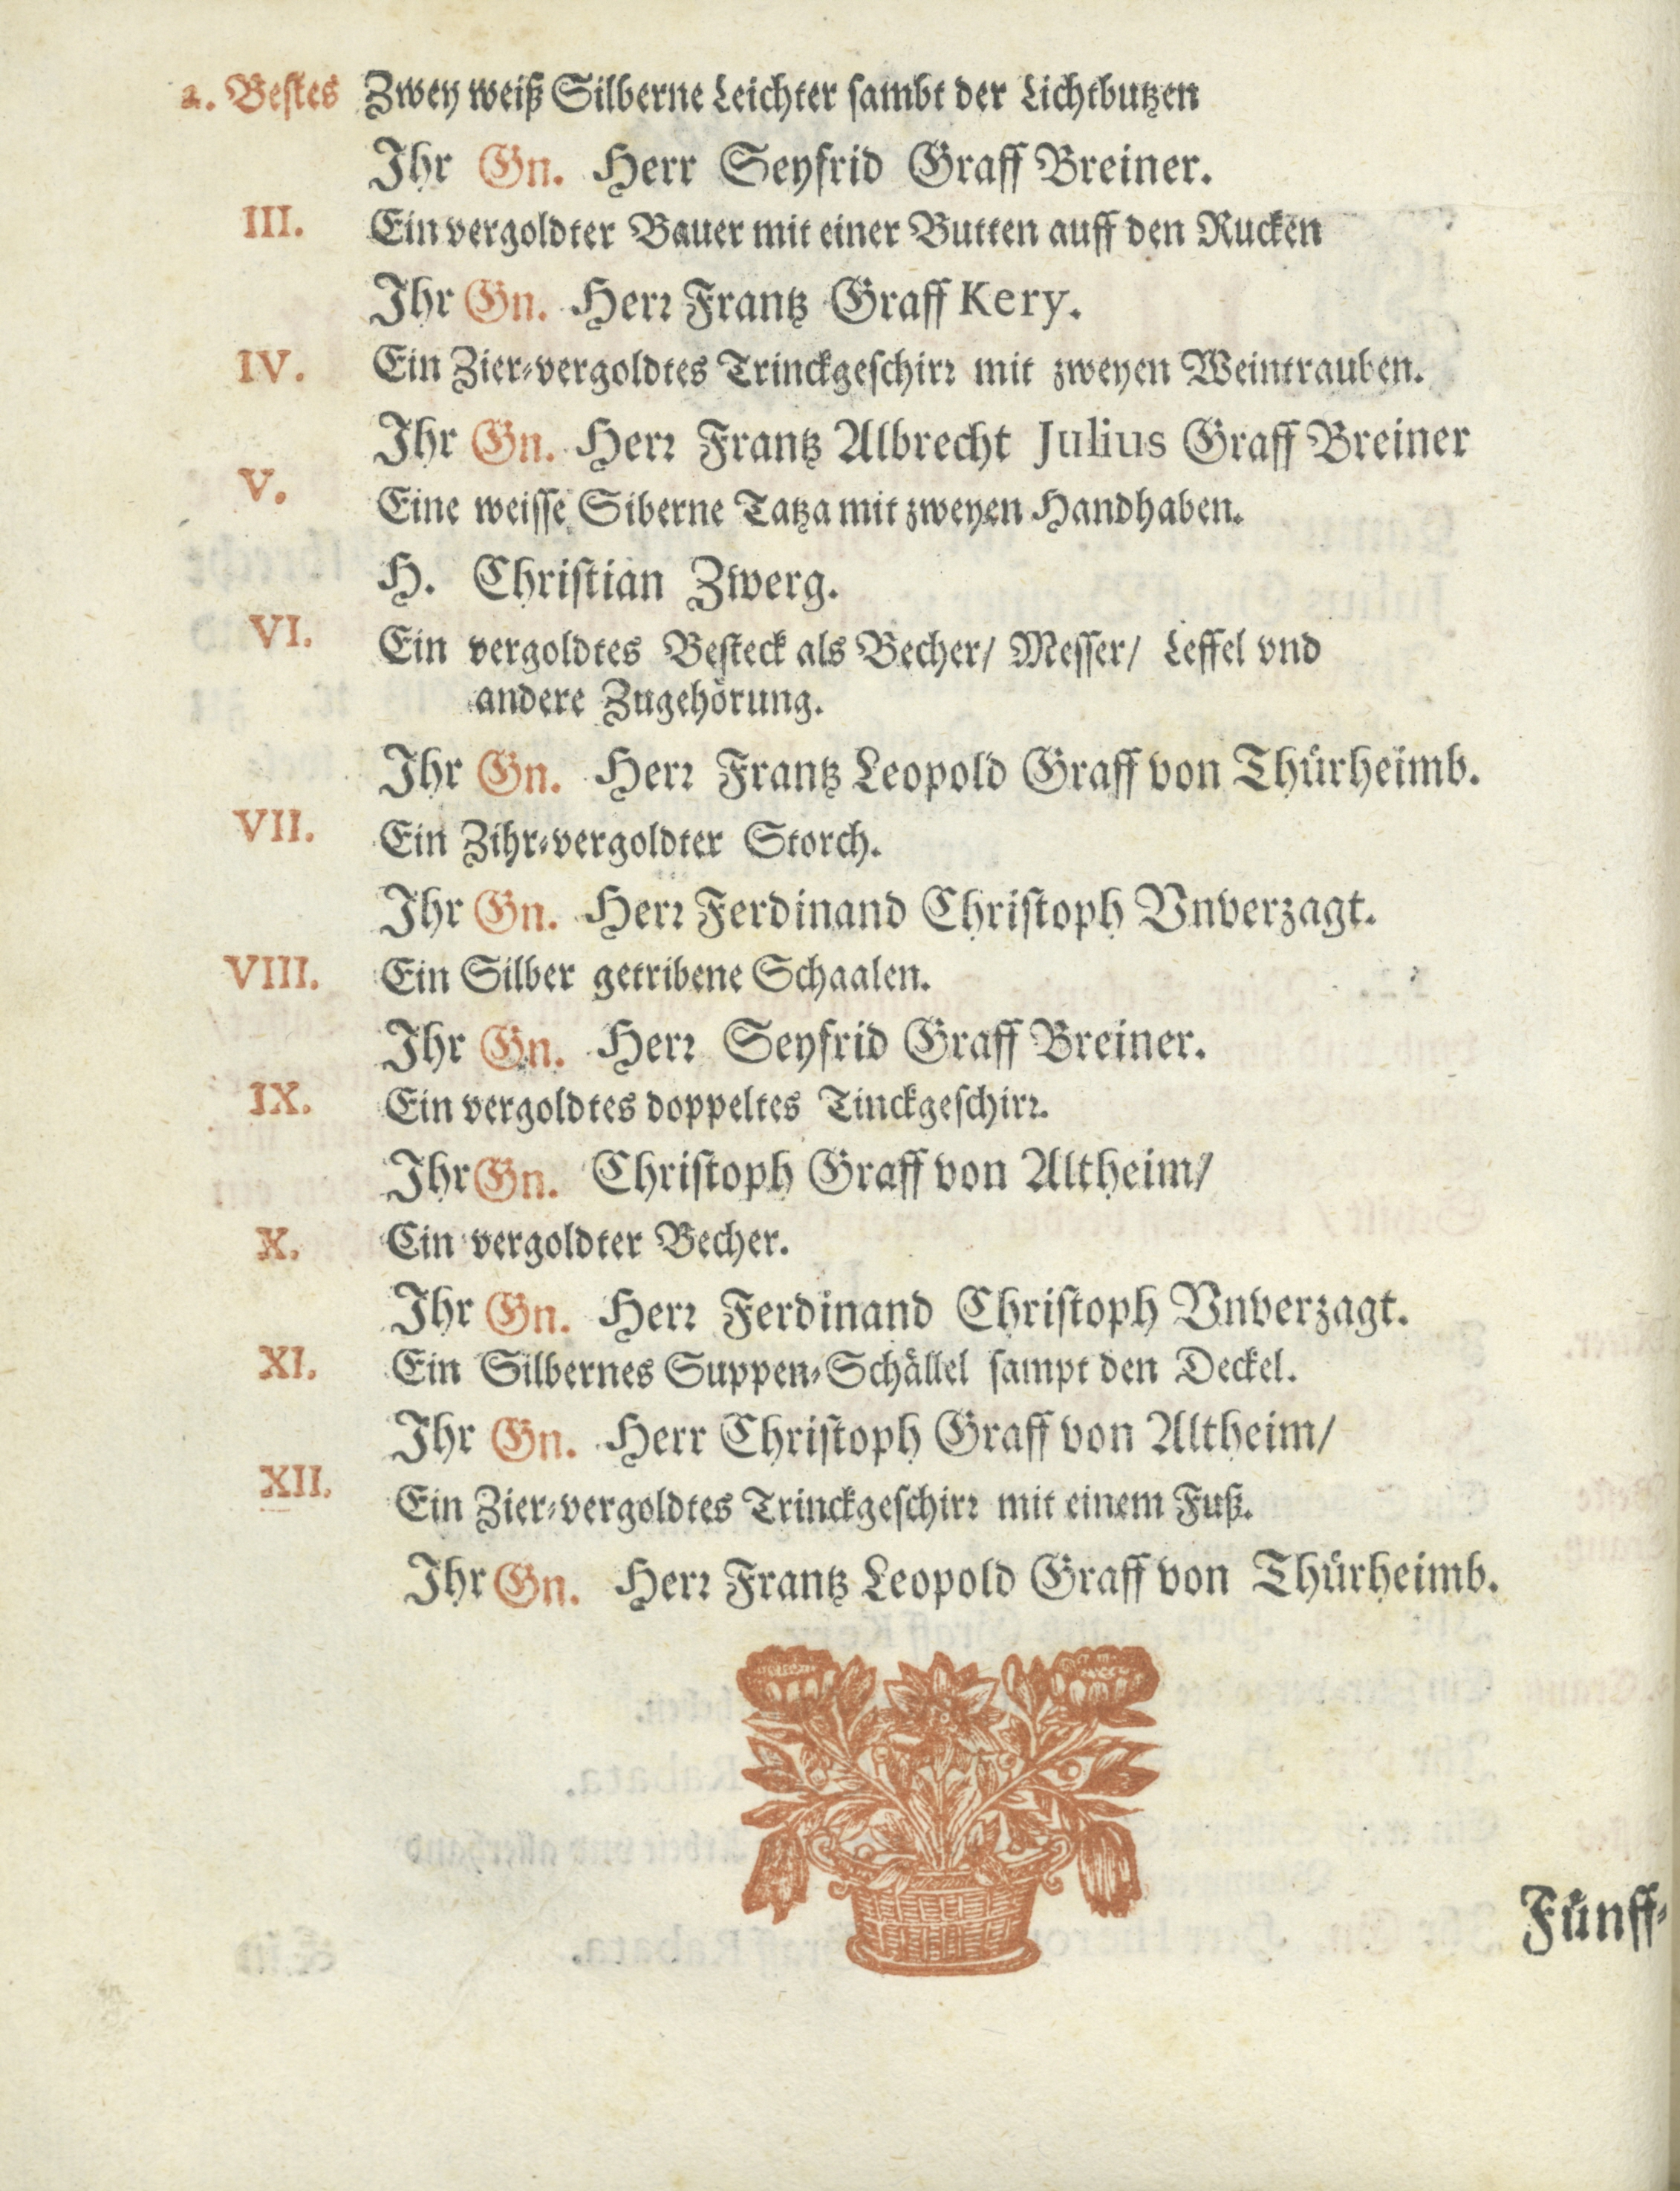 2. Bestes Zwey weiß Silberne Leichter sambt der Lichtbutzen
Ihr Gn. Herr Seyfrid Graff Breiner.
III. Ein vergoldter Bauer mit einer Butten auff den Rucken
Ihr Gn. Herr Frantz Graff Kery.
IV. Ein Zier-vergoldtes Trinckgeschirr mit zweyen Weintrauben.
Ihr Gn. Herr Frantz Albrecht Julius Graff Breiner
V. Eine weisse Siberne Tatza mit zweyen Handhaben.
H. Christian Zwerg.
VI. Ein vergoldtes Besteck als Becher/ Messer/ Leffel vnd
andere Zugehörung.
Ihr Gn. Herr Frantz Leopold Graff von Thürheimb.
VII. Ein Zihr-vergoldter Storch.
Ihr Gn. Herr Ferdinand Christoph Vnverzagt.
VIII. Ein Silber getribene Schaalen.
Ihr Gn. Herr Seyfrid Graff Breiner.
IX. Ein vergoldtes doppeltes Tinckgeschirr.
Ihr Gn. Christoph Graff von Altheim/
X. Ein vergoldter Becher.
Ihr Gn. Herr Ferdinand Christoph Vnverzagt.
XI. Ein Silbernes Suppen-Schällel sampt den Deckel.
Ihr Gn. Herr Christoph Graff von Altheim/
XII. Ein Zier-vergoldtes Trinckgeschirr mit einem Fuß.
Ihr Gn. Herr Frantz Leopold Graff von Thürheimb.
Fünff-